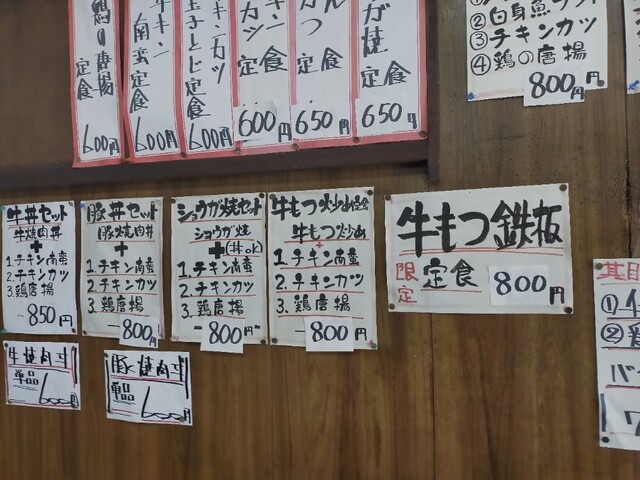 鶏の唐揚
定食
600円
南蛮定食
600円
チキンカツ
玉子とじ定食
600円
定食
600円
定食
650円
が焼
定食
650円
②白身魚フライ
③チキンカツ
④鶏の唐揚
800円
牛丼セット
牛焼肉丼
+
1.チキン南蛮
2.チキンカツ
3.鶏唐揚
850円
豚丼セット
豚焼肉丼
+
1.チキン南蛮
2.チキンカツ
3.鶏唐揚
800円
ショウガ焼セット
ショウガ焼
+(丼ok)
1.チキン南蛮
2.チキンカツ
3.鶏唐揚
800円
牛もつ炒め定食
牛もつ炒め
+
1.チキン南蛮
2.チキンカツ
3.鶏唐揚
800円
牛もつ鉄板
限定
定食
800円
牛焼肉丼
単品
600円
豚焼肉丼
単品
600円
①
②